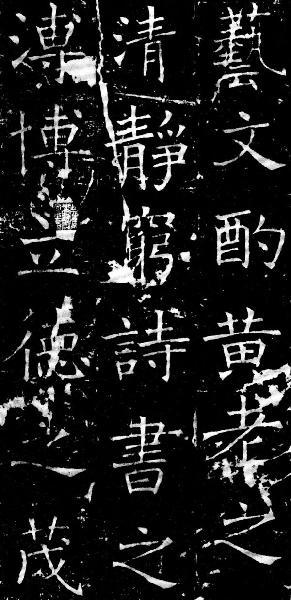 藝文酌黄老之
清静窮詩書之
溥博立德之茂